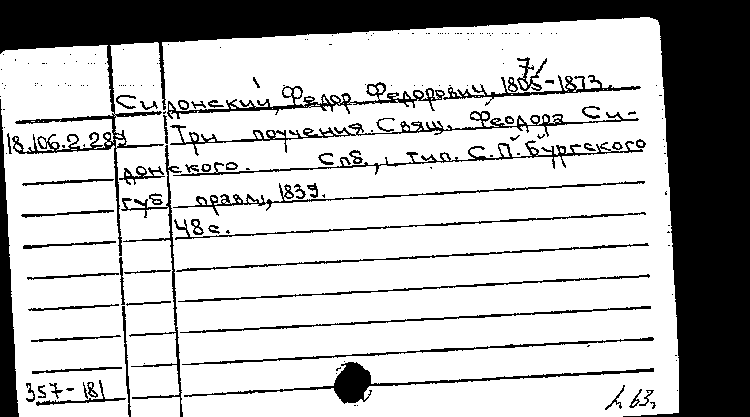 7/
Сидонский, Федор Федорович, 1805-1873.
18.106.2.289 Три поучения Свящ. Феодора Си-
донского. Спб., тип. С.П.Бургского
губ. правл., 1839.
48 с.
357-181
63.